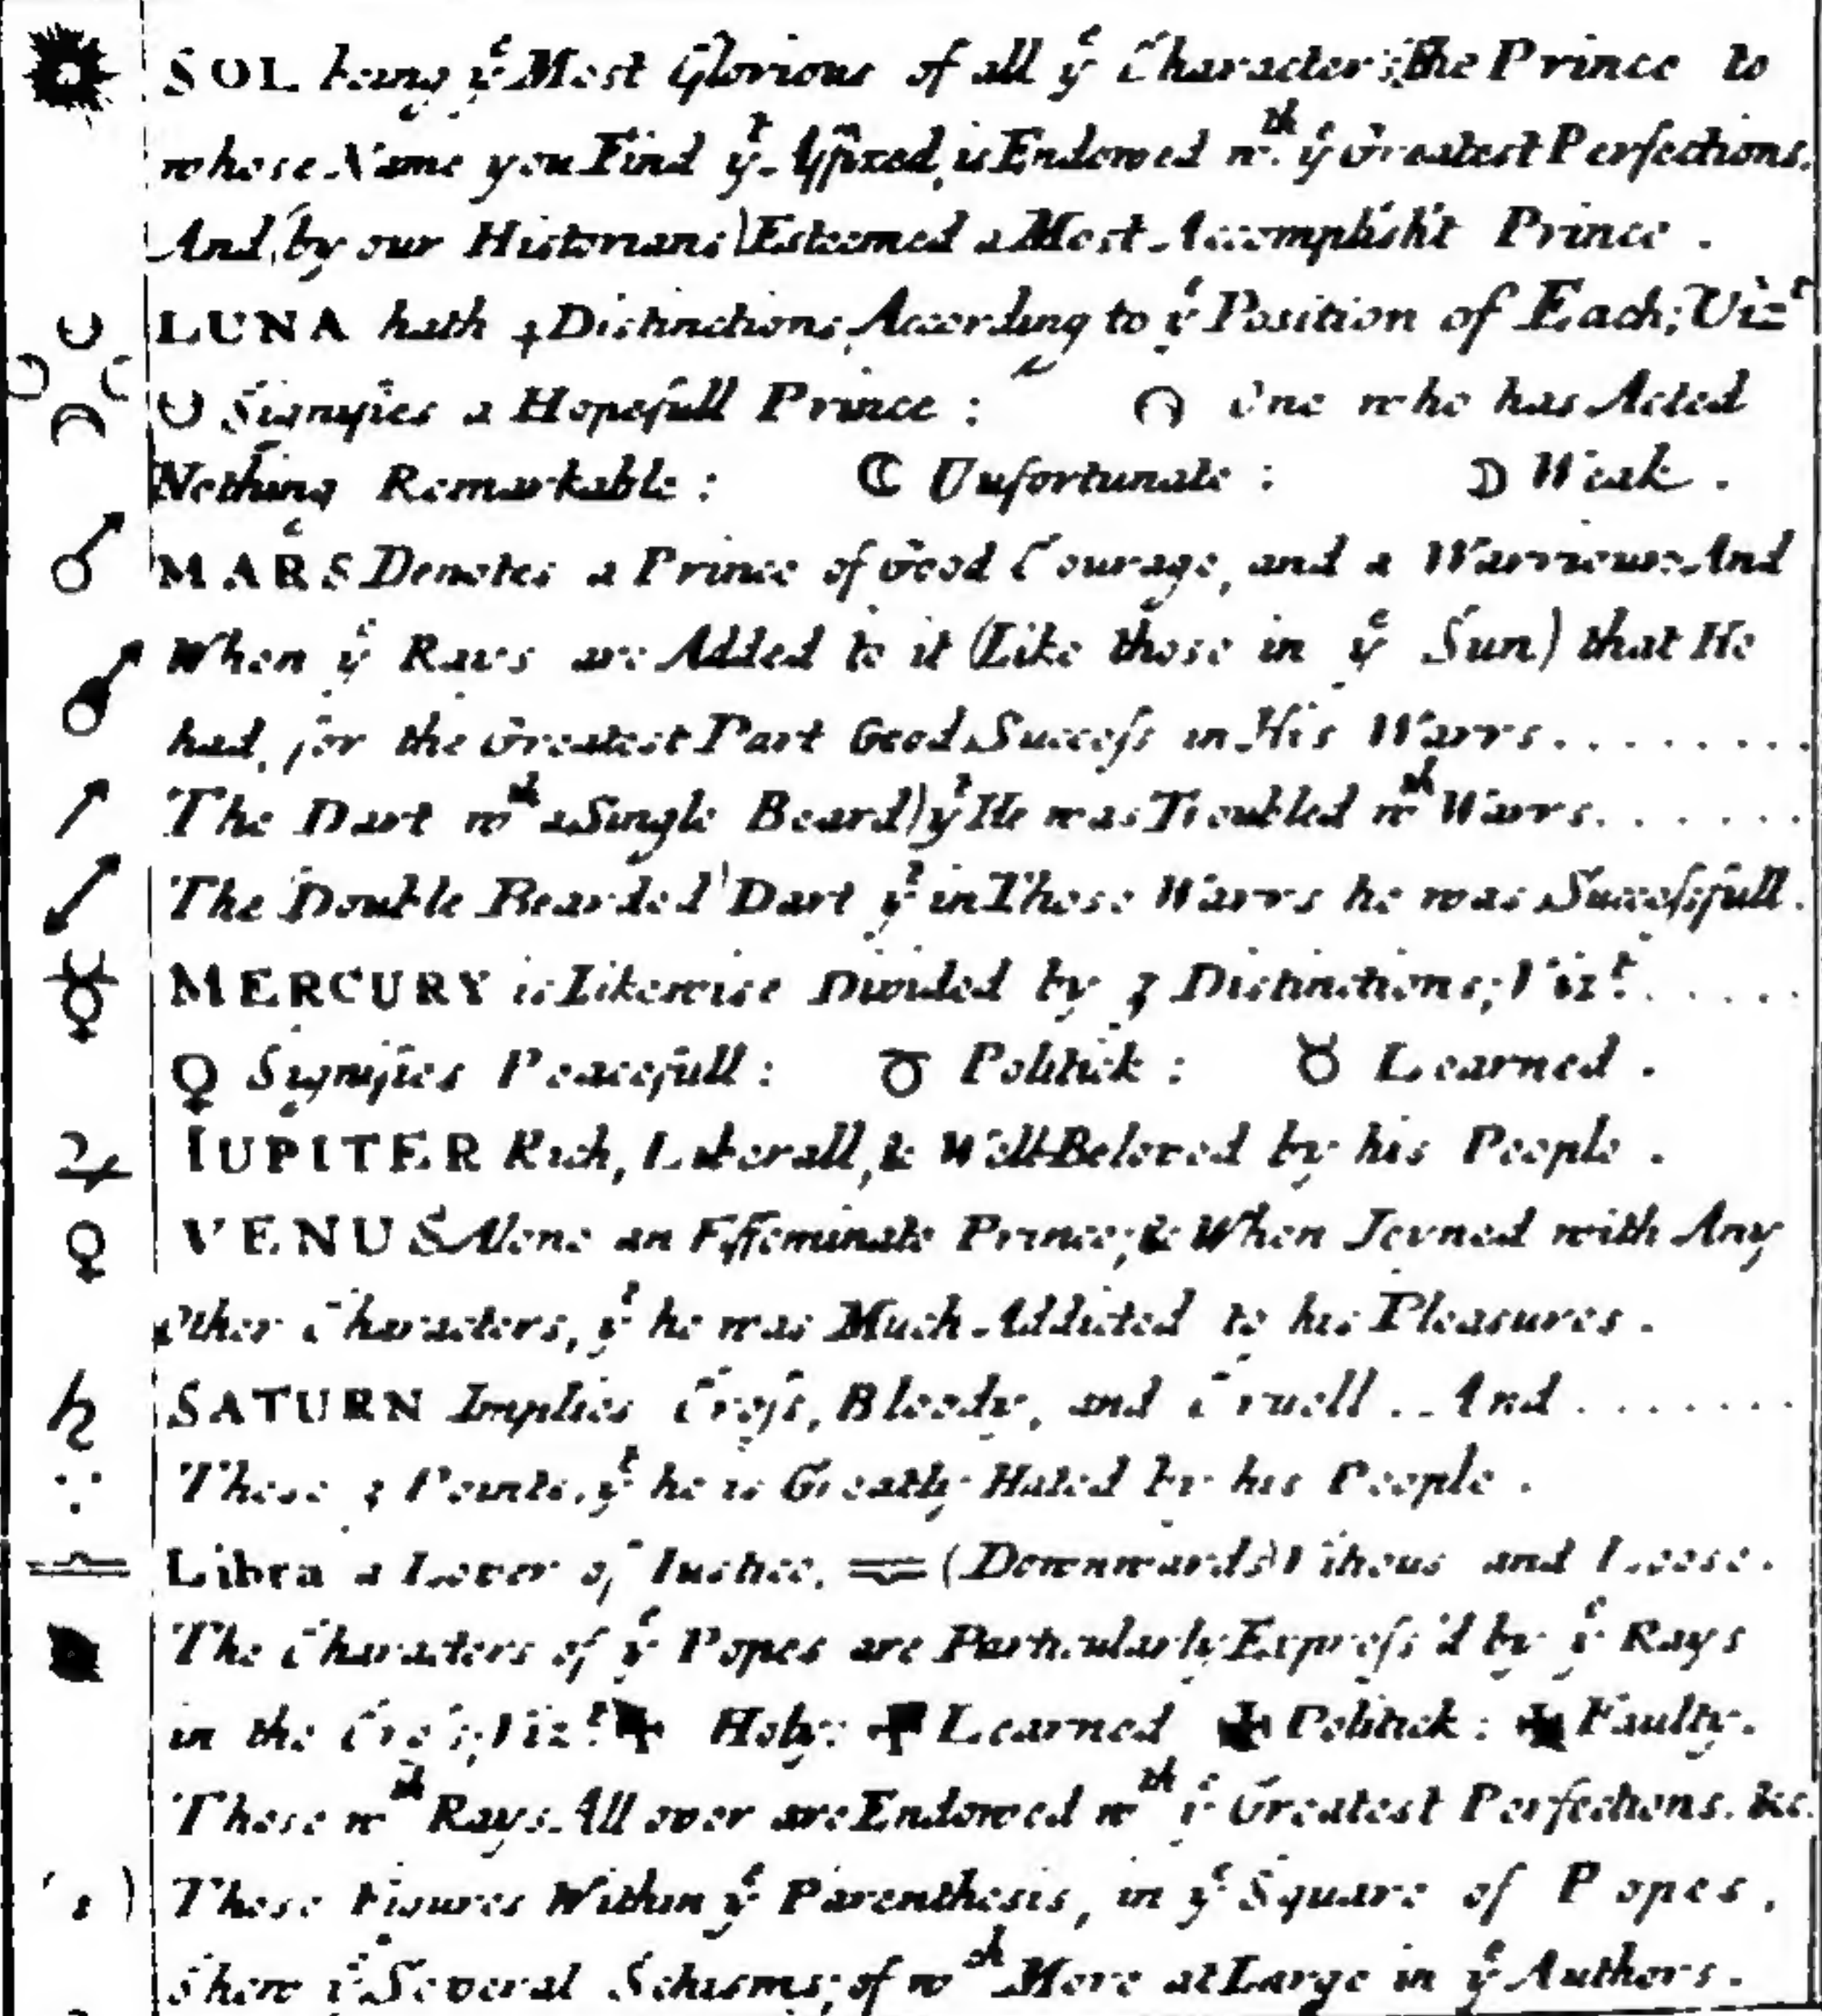 SOL being yᵉ Most Glorious of all yᵉ Characters, the Prince to
whose Name you Find yᵗ Affixed, is Endowed wᵗʰ yᵉ Greatest Perfections.
And (by our Historians) Esteemed a Most Accomplish't Prince .
LUNA hath 4 Distinctions, According to yᵉ Position of Each; Vizᵗ
☽ Signifies a Hopefull Prince : ☽ One who has Acted
Nothing Remarkable : ☾ Unfortunate : ☽ Weak .
♂ MARS Denotes a Prince of Good Courage, and a Warriour: And
When yᵉ Rays are Added to it (Like those in yᵉ Sun) that He
had, for the Greatest Part Good Succeſs in His Warrs . . . . . . . .
The Dart wᵗʰ a Single Beard) yᵗ He was Troubled wᵗʰ Warrs. . . . . . .
The Double Bearded Dart yᵗ in Those Warrs he was Succeſsfull .
☿ MERCURY is Likewise Divided by 3 Distinctions; Vizᵗ . . . . .
♀ Signifies Peacefull : Politick : ♉ Learned .
♃ IUPITER Rich, Liberall, & Well-Beloved by his People .
♀ VENUS Alone an Effeminate Prince; & When Joyned with Any
Other Characters, yᵗ he was Much Addicted to his Pleasures .
♄ SATURN Implies Croſs, Bloody, and Cruell .. And . . . . . . .
These 3 Points, yᵗ he is Greatly Hated by his People .
♎ Libra a Lover of Iustice, (Downwards) Vitious and Loose .
The Characters of yᵉ Popes are Particularly Expreſs'd by yᵉ Rays
in the Croſs; Vizᵗ Holy: Learned Politick : Faulty .
These wᵗʰ Rays All over are Endowed wᵗʰ yᵉ Greatest Perfections. &c.
These Figures Within yᵉ Parenthesis, in yᵉ Square of Popes ,
Shew yᵉ Several Schisms; of wᶜʰ More at Large in yᵉ Authors .